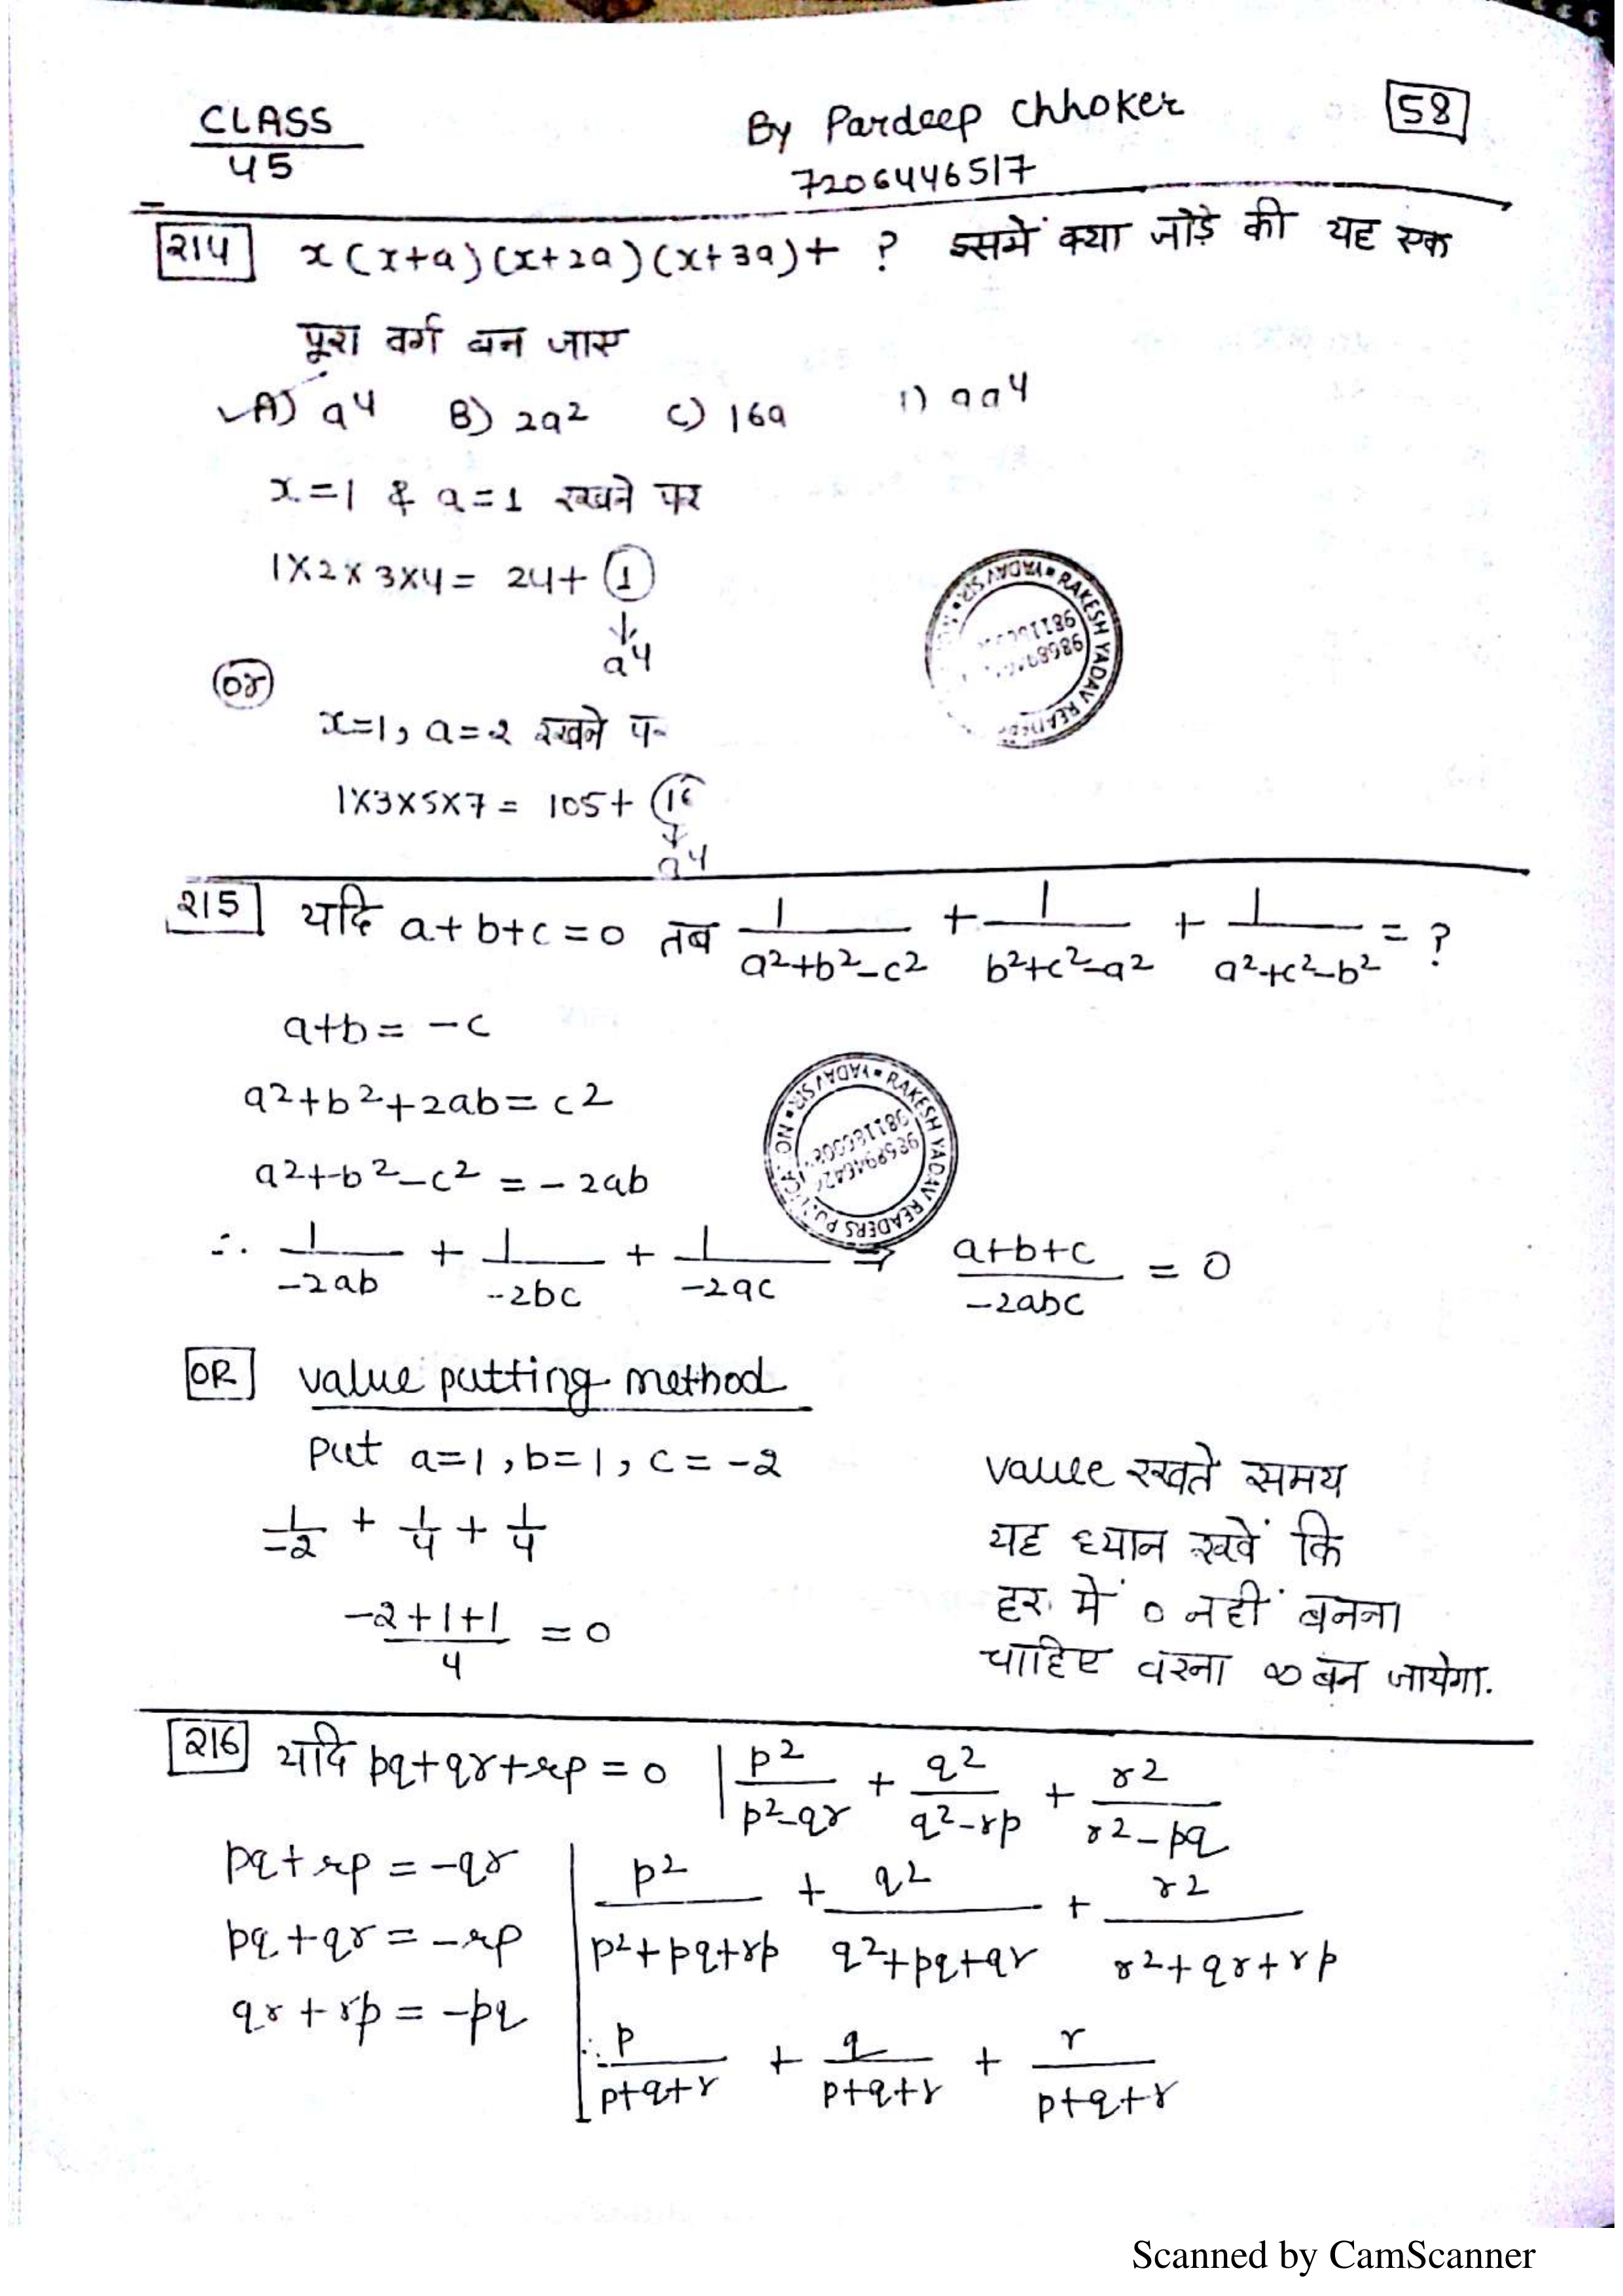 CLASS
45
By Pardeep Chhoker
7206446517
58
214 x(x+a)(x+2a)(x+3a)+ ? इसमें क्या जोड़े की यह एक
पूरा वर्ग बन जाए
A) a4 B) 2a2 C) 16a
x=1 & a=1 रखने पर
1×2×3×4= 24+ 1
↓
a4
or
x=1, a=2 रखने
1×3×5×7= 105+
↓
a4
RAKESH YADAV READERS
YADAV SIR
215 यदि a+b+c=0 तब 1/(a2+b2-c2) + 1/(b2+c2-a2) + 1/(a2+c2-b2) = ?
a+b= -c
a2+b2+2ab= c2
a2+b2-c2 = -2ab
RAKESH YADAV READERS
YADAV SIR
∴ 1/(-2ab) + 1/(-2bc) + 1/(-2ac) ⇒ (a+b+c)/(-2abc) = 0
OR value putting method
put a=1, b=1, c=-2
1/-2 + 1/4 + 1/4
(-2+1+1)/4 = 0
value रखते समय
यह ध्यान रखें कि
हर में 0 नहीं बनना
चाहिए वरना ∞ बन जायेगा.
216 यदि pq+qr+rp=0 | p2/(p2-qr) + q2/(q2-rp) + r2/(r2-pq)
pq+rp=-qr
pq+qr=-rp
qr+rp=-pq
p2/(p2+pq+rp) + q2/(q2+pq+qr) + r2/(r2+qr+rp)
∴ p/(p+q+r) + q/(p+q+r) + r/(p+q+r)
Scanned by CamScanner